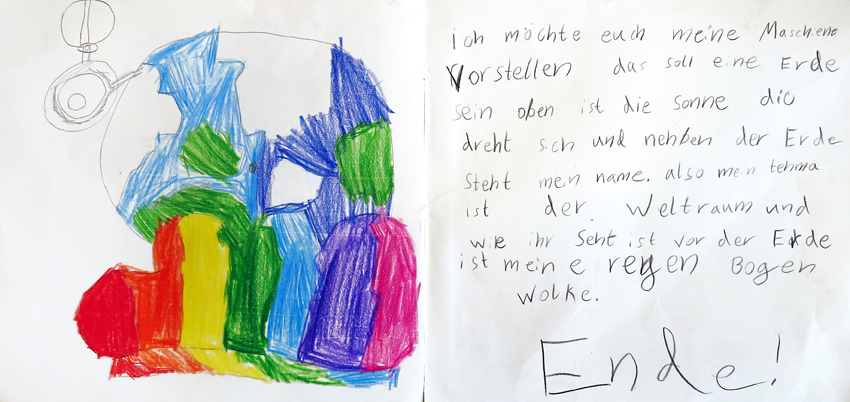 ich möchte euch meine Maschiene
Vorstellen das soll eine Erde
sein oben ist die Sonne die
dreht sich und nehben der Erde
steht mein name. also mein tehma
ist der Weltraum und
wie ihr Seht ist vor der Erde
ist meine regen Bogen
Wolke.
Ende!